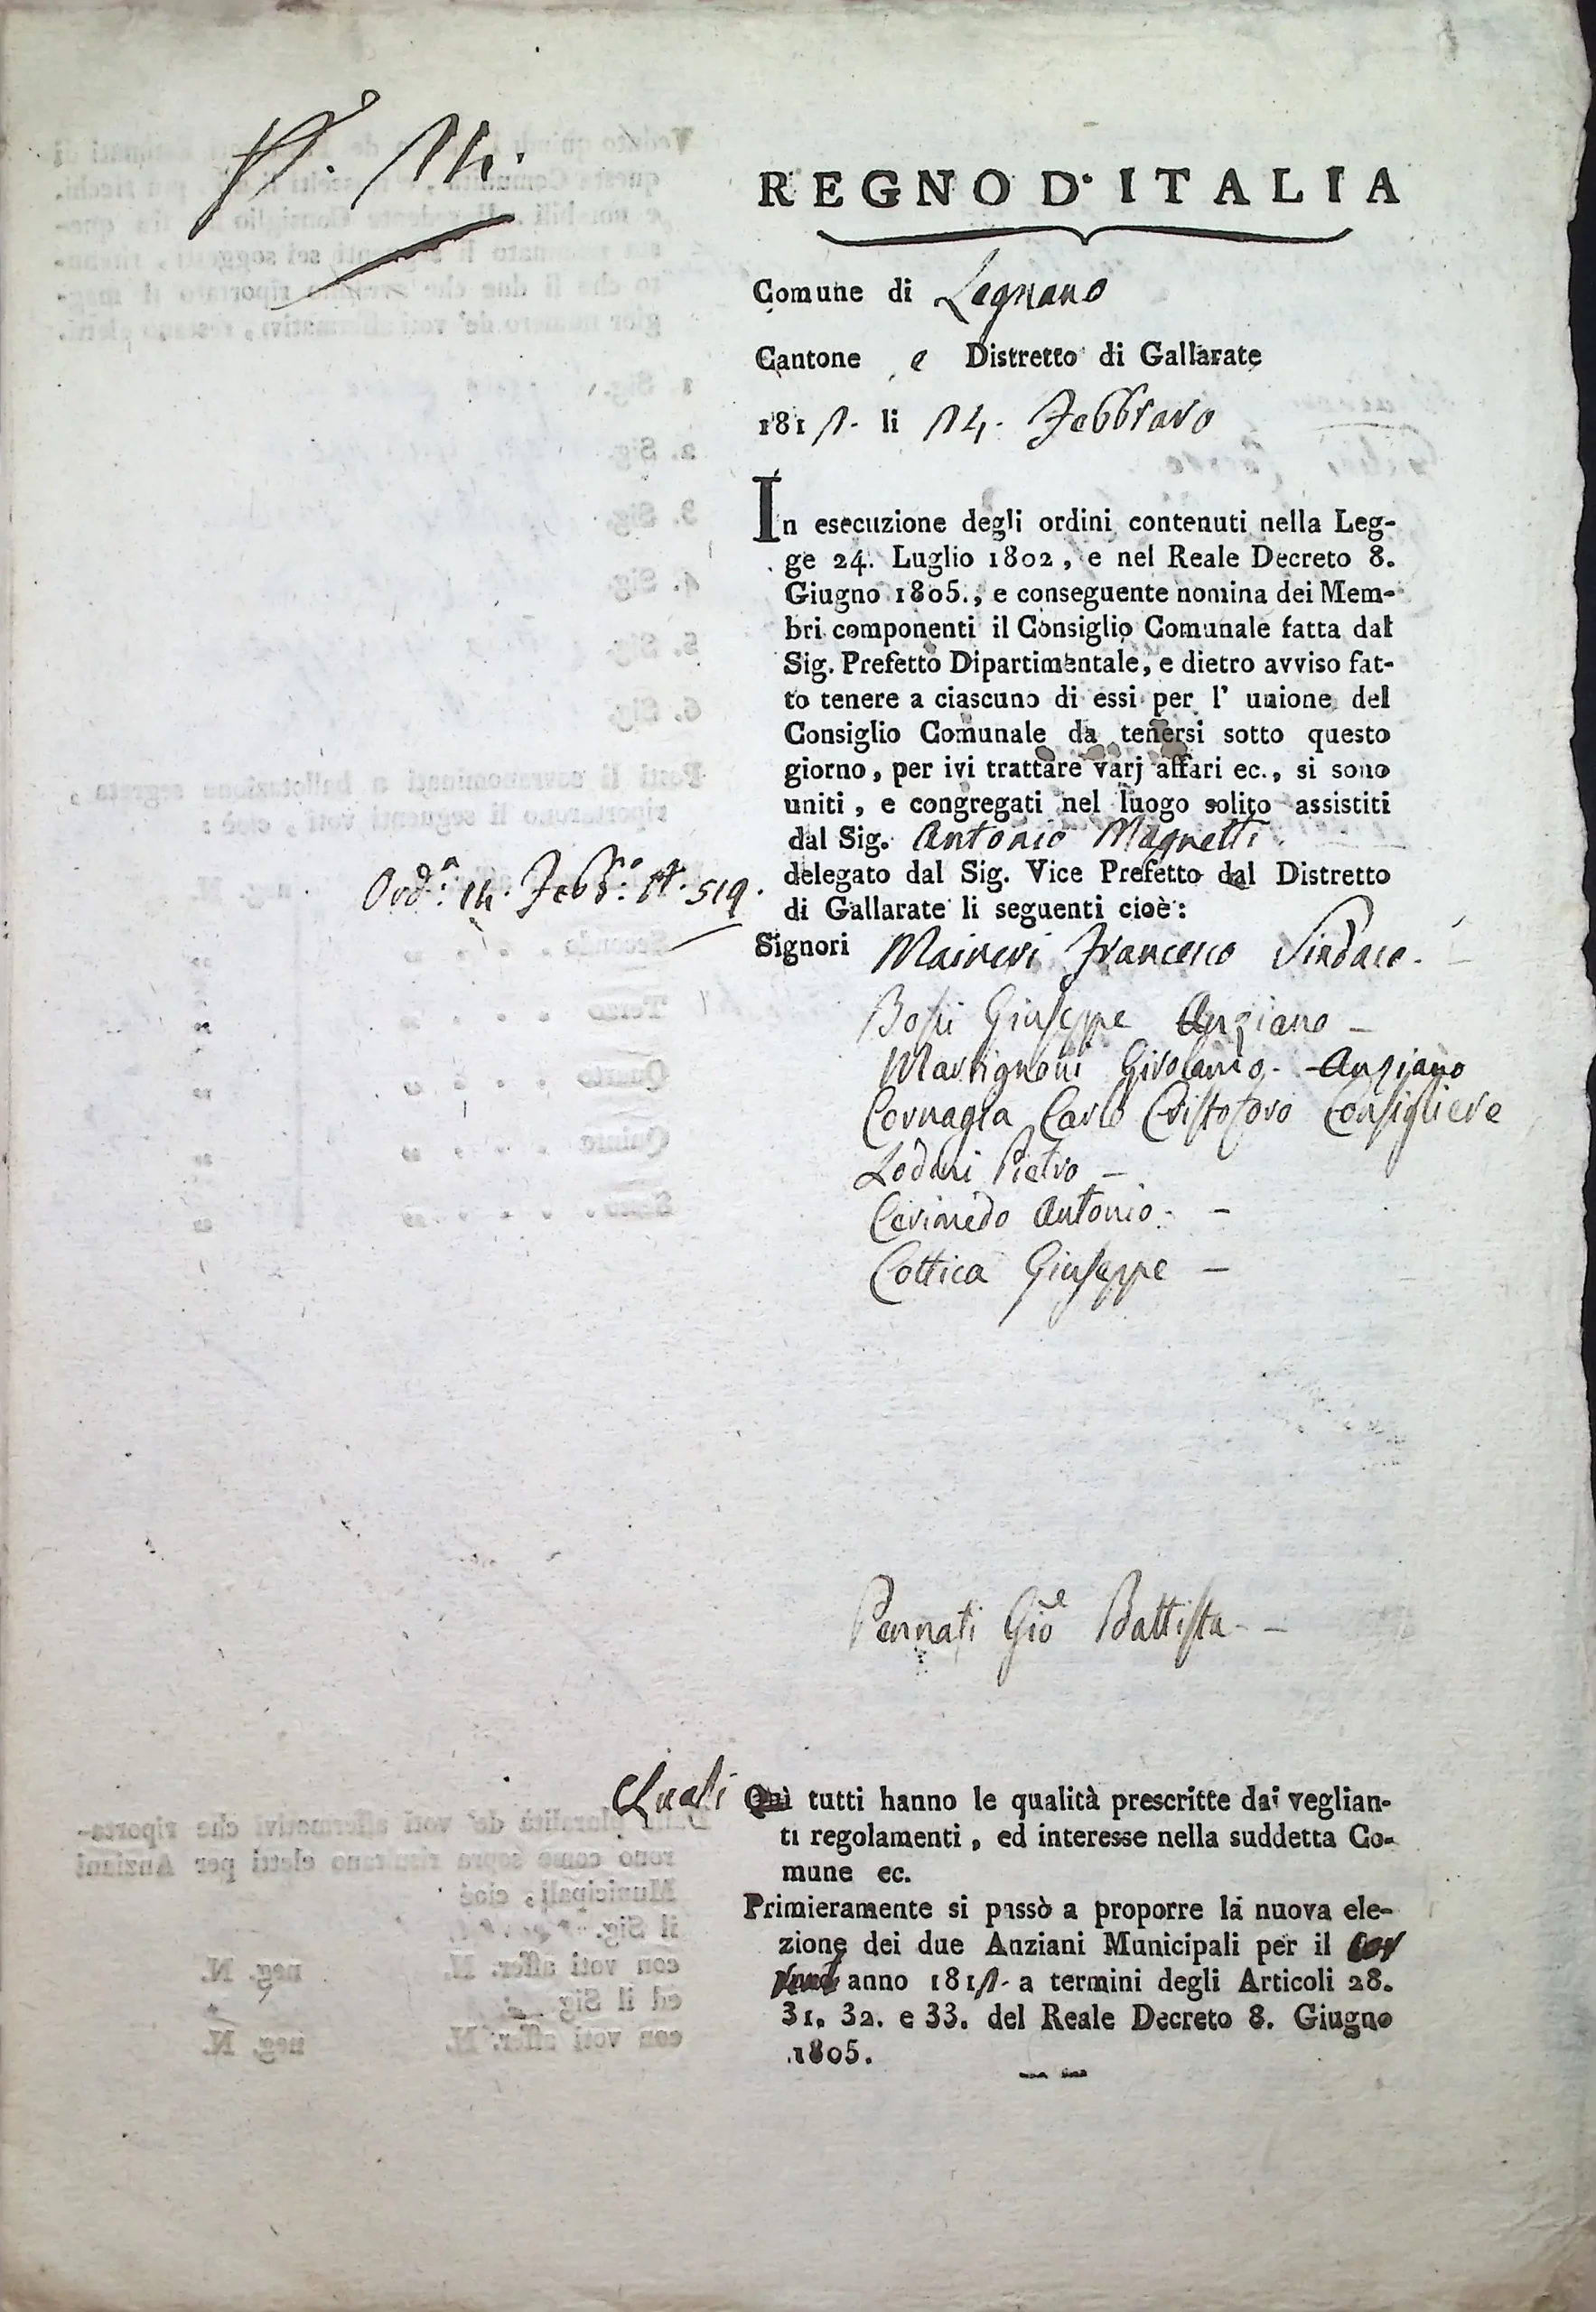 N.° 14.
REGNO D'ITALIA
Comune di Legnano
Cantone e Distretto di Gallarate
1811. li 14. Febbraro
In esecuzione degli ordini contenuti nella Leg-
ge 24. Luglio 1802, e nel Reale Decreto 8.
Giugno 1805., e conseguente nomina dei Mem-
bri componenti il Consiglio Comunale fatta dal
Sig. Prefetto Dipartimentale, e dietro avviso fat-
to tenere a ciascuno di essi per l' unione del
Consiglio Comunale da tenersi sotto questo
giorno, per ivi trattare varj affari ec., si sono
uniti, e congregati nel luogo solito assistiti
dal Sig. Antonio Magnetti
Ord.ª 14. Febb.° N. 519.
delegato dal Sig. Vice Prefetto dal Distretto
di Gallarate li seguenti cioè:
Signori Maineri Francesco Sindaco.
Bossi Giuseppe Anziano
Martignoni Girolamo. Anziano
Cornagia Carlo Cristoforo Consigliere
Lodini Pietro
Cerimedo Antonio.
Cottica Giuseppe
Pennati Gio Battista
Quali Qui tutti hanno le qualità prescritte dai veglian-
ti regolamenti, ed interesse nella suddetta Co-
mune ec.
Primieramente si passò a proporre la nuova ele-
zione dei due Anziani Municipali per il
anno 1811. a termini degli Articoli 28.
31. 32. e 33. del Reale Decreto 8. Giugno
1805.